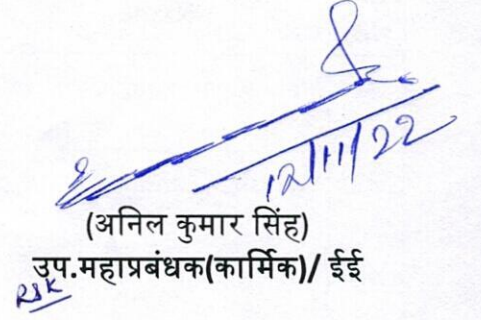 12/11/22
(अनिल कुमार सिंह)
उप.महाप्रबंधक(कार्मिक)/ ईई
RSK